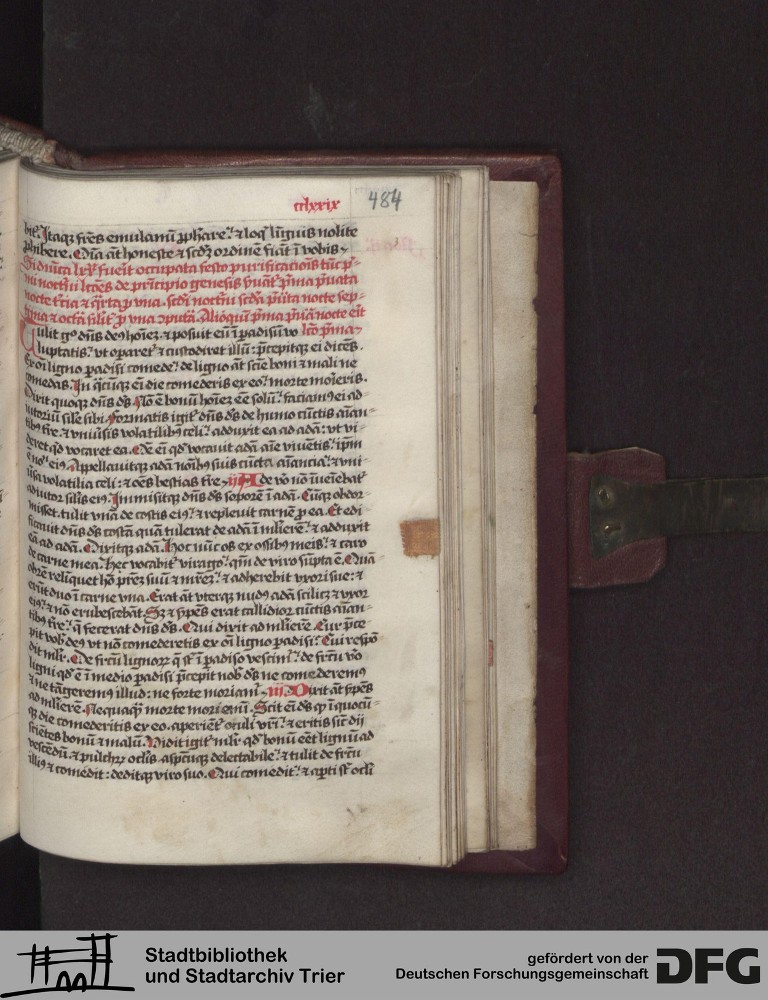 cclxxix 484
bit᷑. Itaq; fr̄es emulamī ꝓph̄are: ⁊ loq̄ līguis nolite
ꝓhibere. Om̄ia āt honeste ⁊ scd̄ꝫ ordinē fiāt ī vobis
Si dn̄ica lxx fuer̄it occupata festo purificacōis tūc
ni noct̄ni lc̄ões de prīcipio genesis
nocte t̄cia ⁊ q̄rta ꝓ vna. scd̄i noct̄ni scd̄a nocte sep-
tima ⁊ octā sil̄r ꝓ vna. Alioquī p̄ma nocte
Tulit gͦ dn̄s deꝰ hoīeꝫ. ⁊ posuit eū ī padisū vo lc̄o p̄ma
luptatis: vt oparet᷑ ⁊ custodiret illū: p̄cepitqꝫ ei dicēs.
Ex oī ligno padisi comede: de ligno āt sciē boni ⁊ mali ne
comedas. In q̄cūqꝫ eī die comederis ex eo: morte morīeris.
Dixit quoqꝫ dn̄s dꝰs. Nō ē bonū hoīeꝫ eē solū: faciamꝰ ei ad-
iutoriū sil̄e sibi. Formatis igit᷑ dn̄s dꝰs de humo cūctis aīan-
tibꝰ t̄re. ⁊ vniūsis volatilibꝰ celi: adduxit ea ad adā: vt vi-
deret qd vocaret ea. Om̄e eī qd vocauit adā aīe viuētis: ip̄m
ē noī eiꝰ. Appellauitqꝫ adā noībꝰ suis cūcta aīancia: ⁊ vni-
ūsa volatilia celi: ⁊ oēs bestias t̄re. ij Ade vͦo nō īueīebat᷑
adiutor sil̄is eiꝰ. Inmisitqꝫ dn̄s dꝰs soporē ī adā. Cūqꝫ obdor-
misset. tulit vnā de costis eiꝰ: ⁊ repleuit carnē ꝓ ea. Et edi-
ficauit dn̄s dꝰs costā quā tulerat de adā ī mlīerē: ⁊ adduxit
eā ad adā. Dixitqꝫ adā. Hoc nūc os ex ossibꝰ meis: ⁊ caro
de carne mea. hec vocabit᷑ virago: qm̄ de viro sūpta ē. Quā
obrē relīquet hō pr̄eꝫ suū ⁊ mr̄eꝫ: ⁊ adherebit vxori sue: ⁊
erūt duo ī carne vna. Erat āt vterqꝫ nudꝰ adā scilicꝫ ⁊ vxor
eiꝰ: ⁊ nō erubescebāt. Sꝫ ⁊ s̄pēs erat callidior cūctis aīan-
tibꝰ t̄re: q̄ fecerat dn̄s dꝰs. Qui dixit ad mlīerē. Cur p̄ce-
pit vob̄ deꝰ vt nō comederetis ex oī ligno padisi: Cui respō
dit ml̄r. De fr̄cu lignoꝝ q̄ st̄ ī padiso vescim᷑: de fr̄cu vͦo
ligni qd ē ī medio padisi p̄cepit nob̄ dꝰs ne comederemꝰ
⁊ ne tāgeremꝰ illud: ne forte moriam᷑. iij Dixit āt s̄pēs
ad mlīerē. Nequaqͣꝫ morte moriemī. Scit eī dꝰs qꝫ ī quocū-
qꝫ die comederitis ex eo. aperiēt᷑ oculi vr̄i: ⁊ eritis sic̄ dij
sciētes bonū ⁊ malū. Vidit igit᷑ ml̄r qd bonū eēt lignū ad
vescēdū. ⁊ pulchꝝ oclīs. aspc̄uqꝫ delectabile: ⁊ tulit de fr̄cu
illiꝰ ⁊ comedit: deditqꝫ viro suo. Qui comedit: ⁊ apti st̄ ocl̄i
Stadtbibliothek
und Stadtarchiv Trier
gefördert von der
Deutschen Forschungsgemeinschaft
DFG